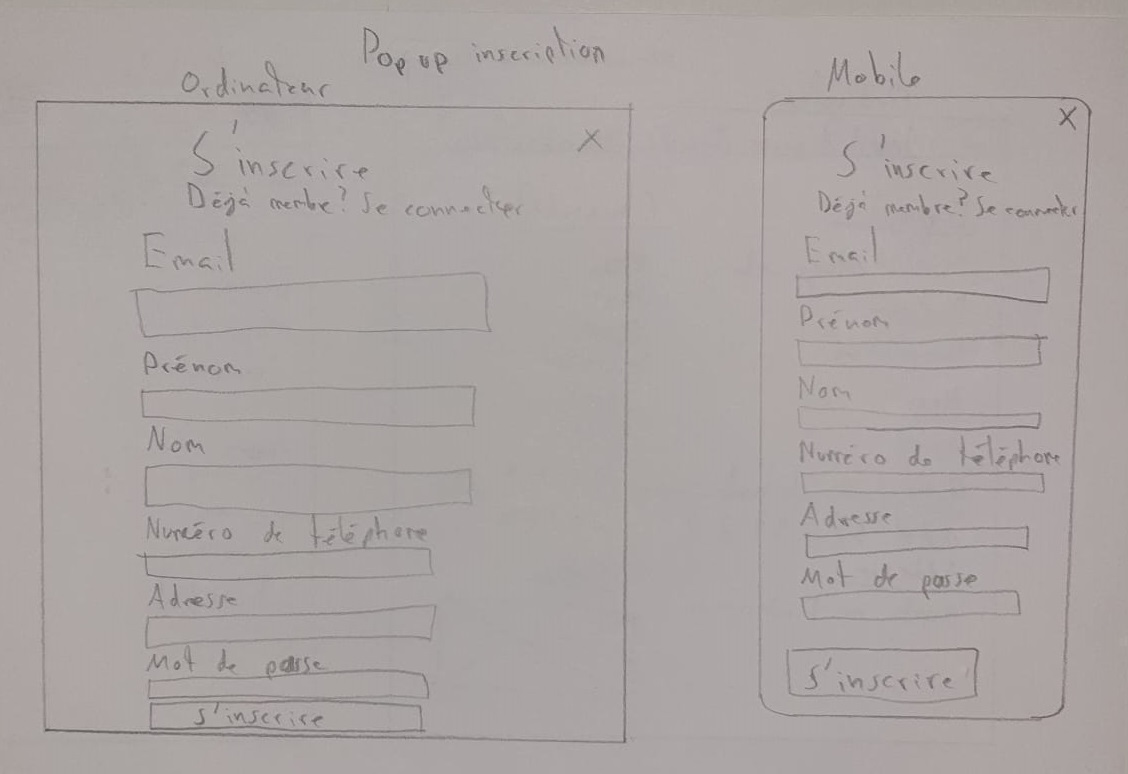 Pop up inscription
Ordinateur
X
S'inscrire
Déjà membre? Se connecter
Email
Prénom
Nom
Numéro de téléphone
Adresse
Mot de passe
S'inscrire
Mobile
X
S'inscrire
Déjà membre? Se connecter
Email
Prénom
Nom
Numéro de téléphone
Adresse
Mot de passe
S'inscrire